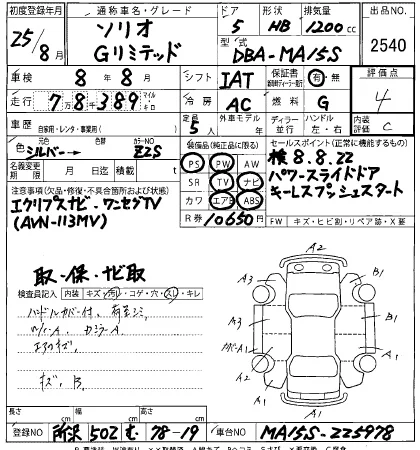 初度登録年月 通称車名・グレード ドア 形状 排気量 出品NO.
25/8月 ソリオ Gリミテッド 5 HB 1200cc 2540
型式 DBA-MA15S
車検 8年8月 シフト IAT 保証書 有・無 評価点 4
走行 78千389 マイル キロ 冷房 AC 燃料 G 内装評価 C
車歴 自家用・レンタ・事業用( ) 定員 5人 外車モデル 年 ディーラー 並行 ハンドル 左・右
色 元色 シルバー→ 色替 カラーNO Z2S
名義変更期限 月 日迄 積載 t
装備品(純正品に限る)
PS PW AW
SR TV ナビ
カワ エアB ABS
R券 10650円
セールスポイント(正常に機能するもの)
検 8.8.22
パワースライドドア
キーレスプッシュスタート
注意事項(欠品・修復・不具合箇所および状態)
エクリプスナビ・ワンセグTV
(AVN-113MV)
FW キズ・ヒビ割・リペア跡・X要
取・保・ナビ取
検査員記入 内装 キズ・汚レ・コゲ・穴・スレ・キレ
ハンドルカバー付、荷室シミ
エアロキズ、
キズ、B、
A2
A3 B1
A3 A1
A2
A1 A1
長さ cm 幅 cm 高さ cm
登録NO 所沢 502 む 78-19 車台NO MA15S-225978